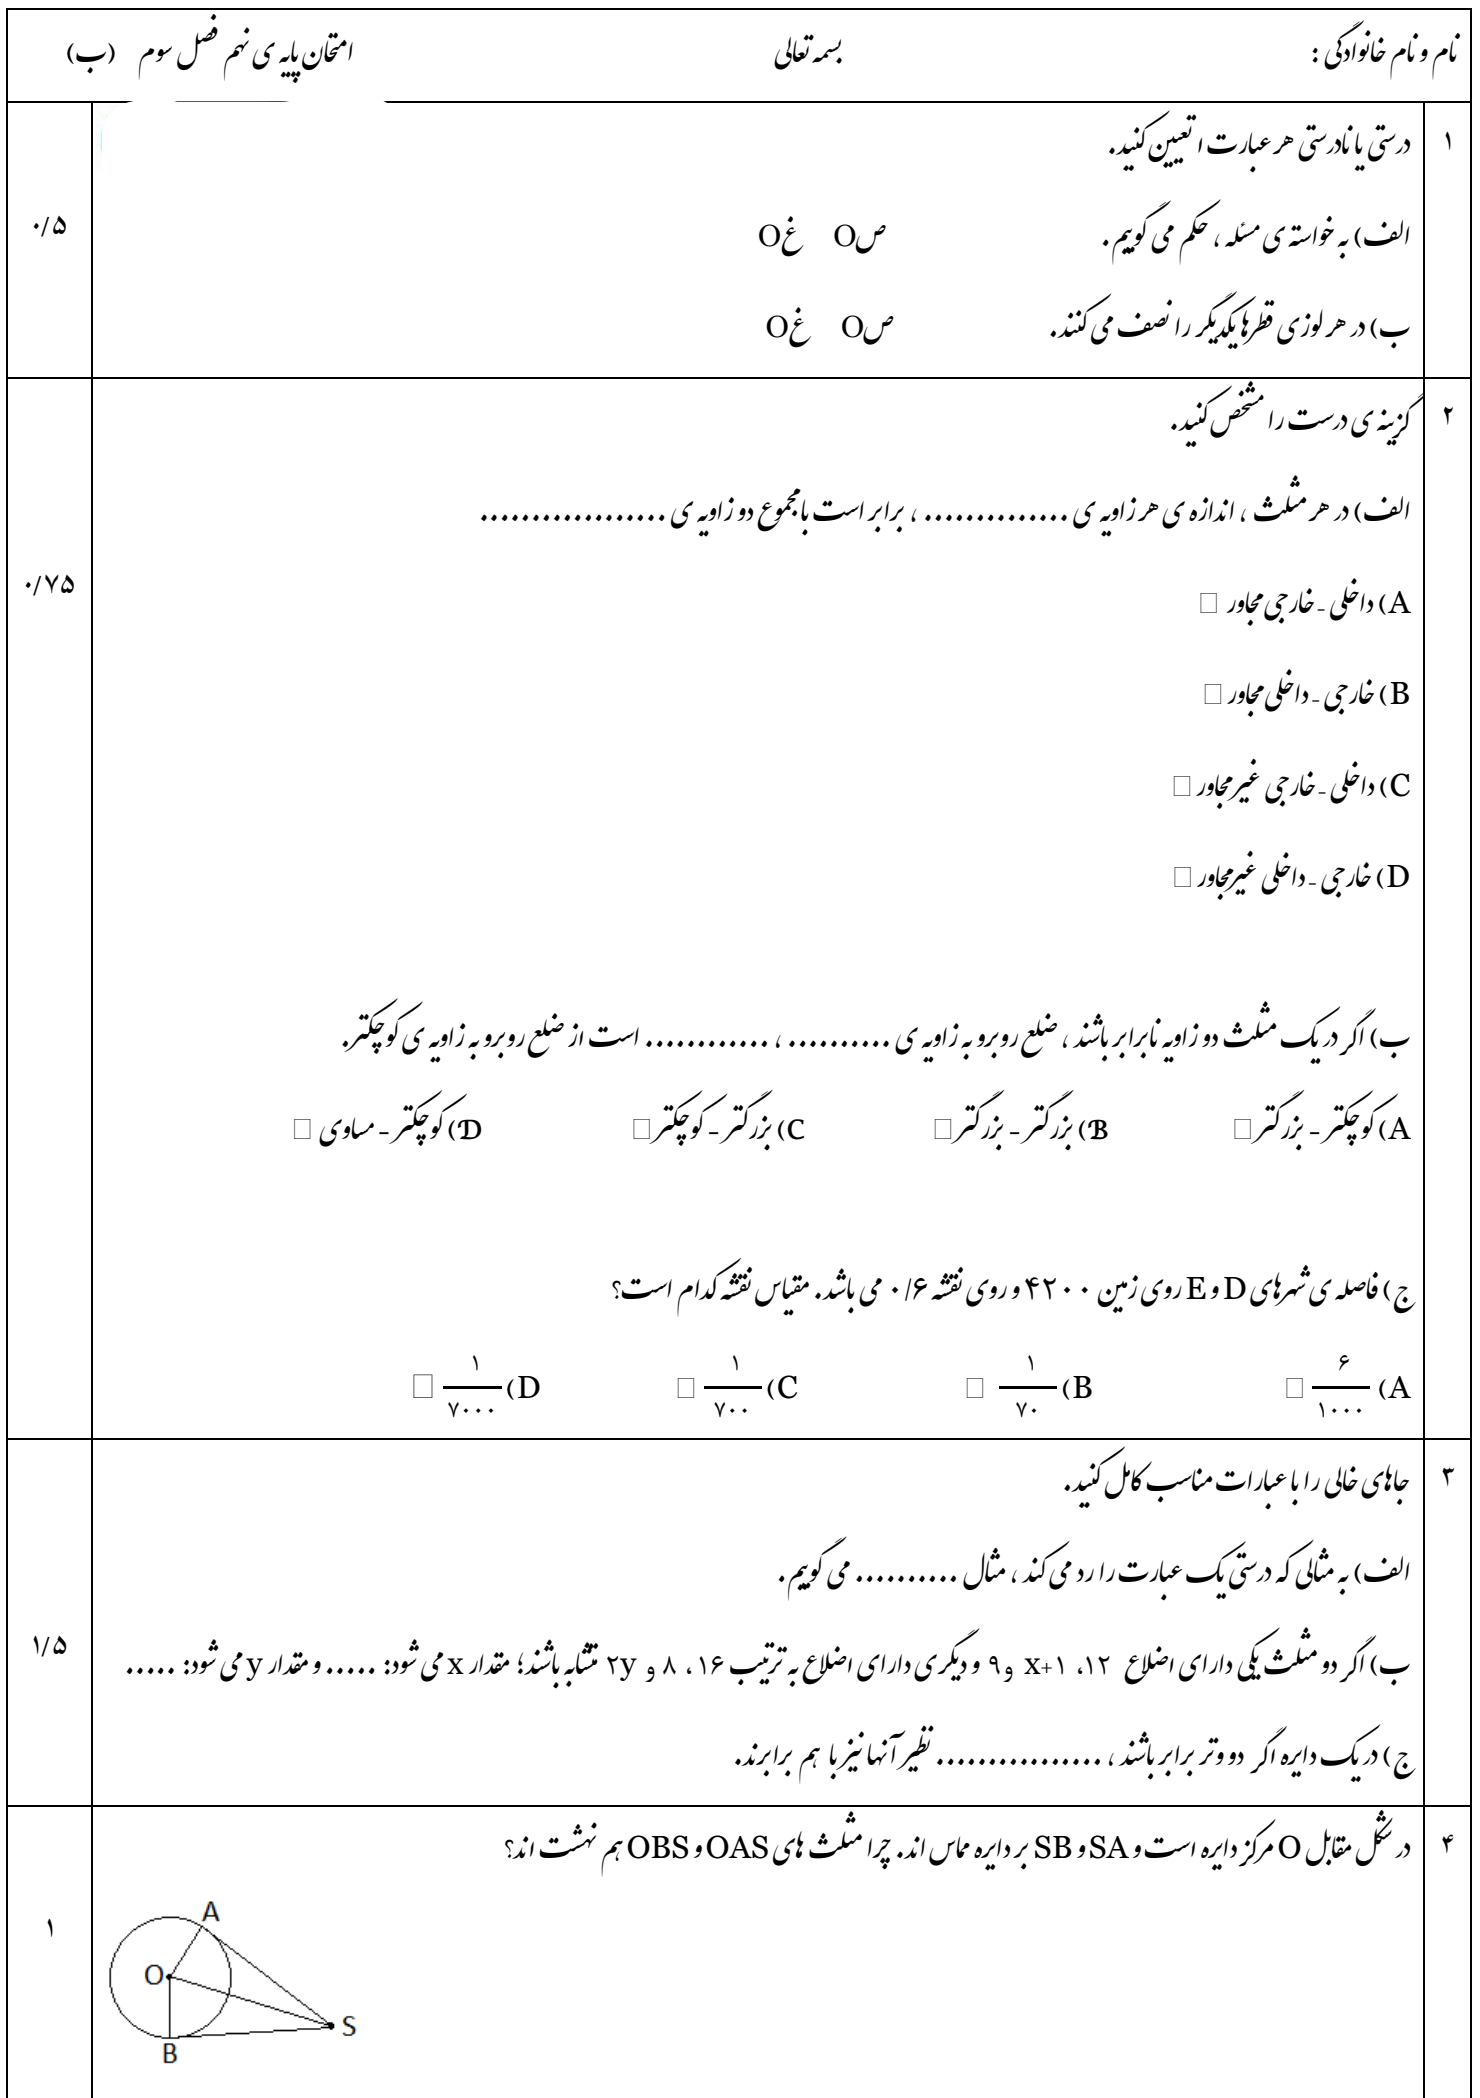 نام و نام خانوادگی : بسمه تعالی امتحان پایه ی نهم فصل سوم (ب)
۱ درستی یا نادرستی هر عبارت ا تعیین کنید.
الف) به خواسته ی مسئله ، حکم می گوییم. صO غO
۰/۵
ب) در هر لوزی قطرها یکدیگر را نصف می کنند. صO غO
۲ گزینه ی درست را مشخص کنید.
الف) در هر مثلث ، اندازه ی هر زاویه ی .............. ، برابر است با مجموع دو زاویه ی ..................
۰/۷۵
A) داخلی - خارجی مجاور □
B) خارجی - داخلی مجاور □
C) داخلی - خارجی غیرمجاور □
D) خارجی - داخلی غیرمجاور □
ب) اگر در یک مثلث دو زاویه نابرابر باشند ، ضلع روبرو به زاویه ی .......... ، ............ است از ضلع روبرو به زاویه ی کوچکتر.
A) کوچکتر - بزرگتر □ B) بزرگتر - بزرگتر □ C) بزرگتر - کوچکتر □ D) کوچکتر - مساوی □
ج) فاصله ی شهرهای D و E روی زمین ۴۲۰۰ و روی نقشه ۰/۶ می باشد. مقیاس نقشه کدام است؟
A) ۶/۱۰۰۰ □ B) ۱/۷۰ □ C) ۱/۷۰۰ □ D) ۱/۷۰۰۰ □
۳ جاهای خالی را با عبارات مناسب کامل کنید.
الف) به مثالی که درستی یک عبارت را رد می کند ، مثال .......... می گوییم.
۱/۵
ب) اگر دو مثلث یکی دارای اضلاع ۱۲، x+۱ و ۹ و دیگری دارای اضلاع به ترتیب ۱۶ ، ۸ و ۲y متشابه باشند؛ مقدار x می شود: ..... و مقدار y می شود: .....
ج) در یک دایره اگر دو وتر برابر باشند ، ................ نظیر آنها نیز با هم برابرند.
۴ در شکل مقابل O مرکز دایره است و SA و SB بر دایره مماس اند. چرا مثلث های OAS و OBS هم نهشت اند؟
۱
A
O
S
B